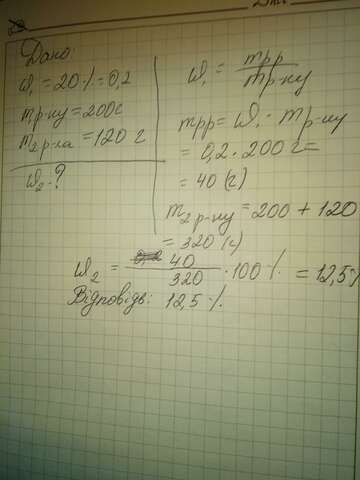 Дано:
W₁ = 20% = 0,2
mр-ну = 200г
m₂р-на = 120 г
W₂ - ?
W₁ = mрр / mр-ну
mрр = W₁ · mр-ну
= 0,2 · 200 г =
= 40 (г)
m₂р-ну = 200 + 120
= 320 (г)
W₂ = 40 / 320 · 100% = 12,5%
Відповідь: 12,5%